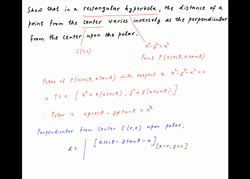 Show that in a rectangular hyperbola, the distance of a
point from the center varies inversely as the perpendicular
from the center upon the polar.
C(0,0)
x²-y²=a²
Point P(a secθ, a tanθ)
Polar of P(a secθ, a tanθ) with respect to x²-y²-a²=0
is T=0 [x²→x(a secθ), y²→y(a tanθ)]
∴ Polar is x secθ - y tanθ = a²
Perpendicular from center C(0,0) upon polar,
d = | [x secθ - y tanθ - a] [x=0, y=0]